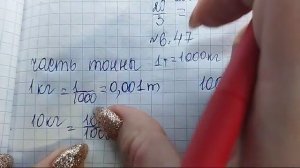 20/5 =
№6.47
часть тонны 1т=1000кг
1кг = 1/1000 = 0,001т
10кг = 10/1000